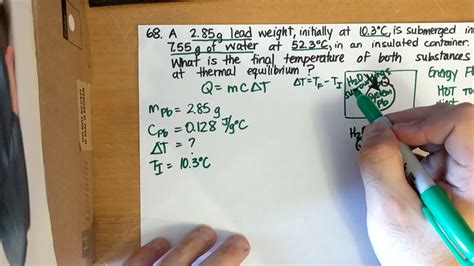 68. A 2.85g lead weight, initially at 10.3°C, is submerged in
7.55g of water at 52.3°C, in an insulated container.
What is the final temperature of both substances
at thermal equilibrium?
Q = mCΔT
ΔT = TF - TI
H2O
Surroundings
Q
System
Pb
Energy
HOT
mPb = 2.85g
CPb = 0.128 J/g°C
ΔT = ?
TI = 10.3°C